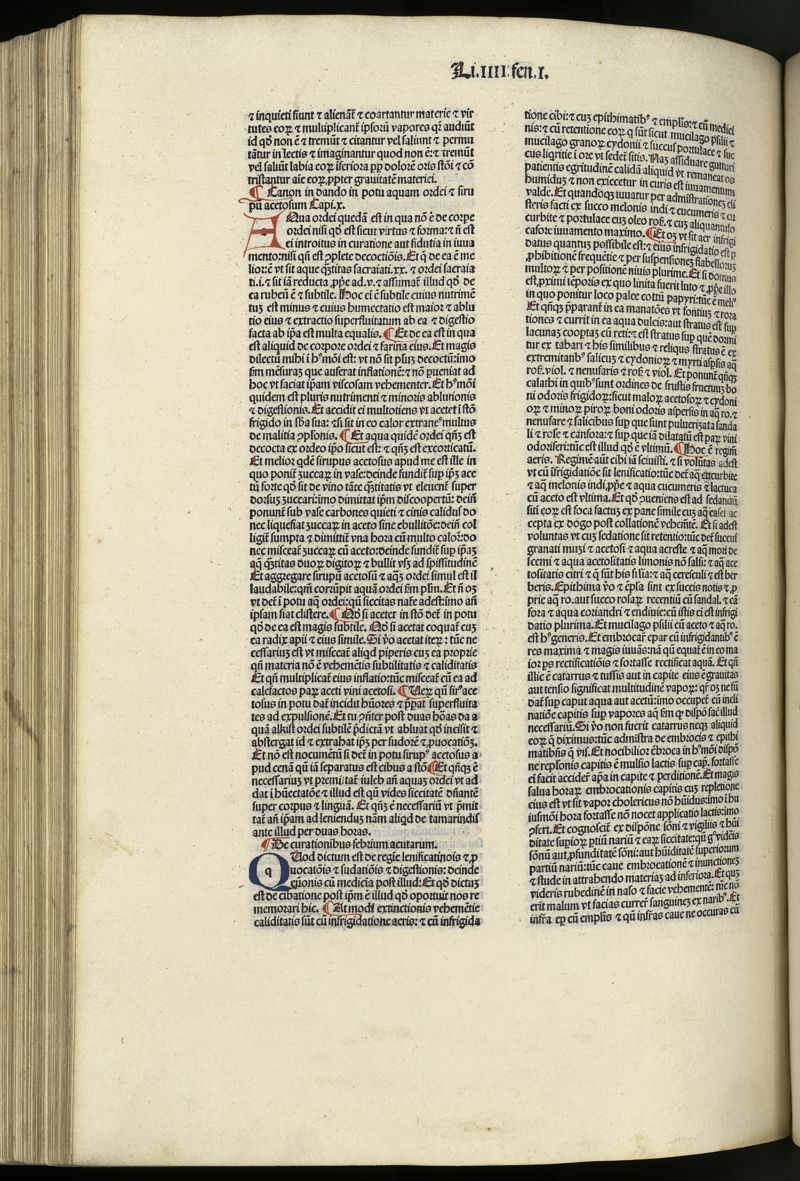 Li. IIII. fen. I.
⁊ inquieti fiunt ⁊ alienāt̄ ⁊ coartantur materie ⁊ vir
tutes eoꝝ ⁊ multiplicant̄ ipsoꝝ vapores qr̄ audiūt
id qđ non ē ⁊ tremūt ⁊ citantur vel saliunt ⁊ permu
tātur in lectis ⁊ imaginantur quod non ē: ⁊ tremūt
vel saliūt labia eoꝝ īferiora ꝓp̄ dolorē oris stōi ⁊ cō
tristantur aīe eoꝝ ꝓpter grauitatē materiei.
¶ Canon in dando in potu aquam ordei ⁊ siru
pū acetosum Capi. x.
AQua ordei quedā est in qua nō ē de corpe
ordei nisi qđ est sicut virtus ⁊ forma: ⁊ ñ est
ei introitus in curatione aut fidutia in iuua
mento: nisi qñ est ꝯplete decoctiōis. Et q̄ de ea ē me
lior ē vt sit aque q̄ntitas sacraiati. xx. ⁊ ordei sacraia
ti. i. ⁊ sit iā reducta ꝓpe ad. v. ⁊ assumat̄ illud qđ de
ea rubeū ē ⁊ subtile. Hoc ei ē subtile cuius nutrimē
tuꝫ est minus ⁊ cuius humectatio est maior ⁊ ablu
tio eius ⁊ extractio superfluitatum ab ea ⁊ digestio
facta ab ip̄a est multa equalis. ¶ Et de ea est in qua
est aliquid de corpore ordei ⁊ farina eius. Et magis
dilectū mihi ī hꝰmōi est: vt nō sit plꝰ decoctū: imo
ẜm mēsuraꝫ que auferat inflationē: ⁊ nō ꝑueniat ad
hoc vt faciat ip̄am viscosam vehementer. Et hꝰmōi
quidem est pluris nutrimenti ⁊ minoris ablutionis
⁊ digestionis. Et accidit ei multotiens vt acetet ī stō
frigido in sb̄a sua: ⁊ si sit in eo calor extraneꝰ multus
de malitia ꝯplonis. ¶ Et aqua quidē ordei qñꝫ est
decocta ex ordeo ip̄o sicut est: ⁊ qñꝫ est excorticatū.
Et melior qdē sirupus acetosus apud me est ille in
quo ponit̄ ʒuccaꝝ in vase: deinde fundit̄ sup ip̄ꝫ ace
tū forte qđ sit de vino tāte q̄ntitatis vt eleuent̄ super
dorsuꝫ ʒuccari: imo dimittat ip̄m discoopertū: dein̄
ponunt̄ sub vase carbones quieti ⁊ cinis calidus do
nec liquefiat ʒuccaꝝ in aceto sine ebullitōe: dein̄ col
ligit̄ spumta ⁊ dimittit̄ vna hora cū multo calor: do
nec misceat̄ ʒuccaꝝ cū aceto: deinde fundit̄ sup ip̄aꝫ
aq̄ q̄ntitas duoꝝ digitoꝝ ⁊ bullit vsꝫ ad spissitudinē
Et aggregare sirupū acetosū ⁊ aq̄ꝫ ordei simul est il
laudabile: qm̄ corrūpit aquā ordei ẜm pl̄m. Et ñ oꝫ
vt det̄ ī potu aq̄ ordei: qñ siccitas nat̄e adest: imo añ
ipsam fiat clistere. ¶ Qđ si acetet in stō det̄ in potu
qđ de ea est magis subtile. Qđ si acetat coquat̄ cuꝫ
ea radix apii ⁊ eius simile. Si ꝟo acetat iteꝝ: tūc ne
cessariuꝫ est vt misceat̄ aliqd piperis cuꝫ ea proprie
qñ materia nō ē vehemētis subtilitatis ⁊ caliditatis
Et qñ multiplicat̄ eius inflatio: tūc misceat̄ cū ea ad
calefactos paꝝ aceti vini acetosi. ¶ Ueꝝ qñ siꝰ ace
tosus in potu dat̄ incidit hūores ⁊ p̄pat superfluita
tes ad expulsionē. Et tu ꝯn̄ter post duas hōas da a
quā alkist ordei subtilē p̄dictā vt abluat qđ incisit ⁊
abstergat id ⁊ extrahat ip̄ꝫ per sudorē ⁊ ꝓuocatiōꝫ.
Et nō est nocumētū si det̄ in potu sirupꝰ acetosus a
pud cenā qn̄ iā separatus est cibus a stō. ¶ Et qn̄qꝫ ē
necessariuꝫ vt premitat̄ iuleb añ aquas ordei vt ad
dat ī hūectatōe ⁊ illud est qñ vides siccitatē dn̄antē
super corpus ⁊ linguā. Et qñꝫ ē necessariū vt p̄mit
tat̄ añ ipam ad leniendus nām aliqđ de tamarindis
ante illud per duas horas.
¶ De curationibus febrium acutarum.
QUod dictum est de regiē lenificatinois ⁊ ꝓ
uocatōis ⁊ sudatiōis ⁊ digestionis: deinde
eq̄uonis cū medicīa post illud: Et qđ dictuꝫ
est de cibatione post ip̄m ē illud qđ oportuit nos re
memorari hic. ¶ At modi extinctionis vehemētie
caliditatis sūt cū infrigidatione aeris: ⁊ cū infrigida
tione cibi: ⁊ cuꝫ epithimatibꝰ ⁊ emplīs: ⁊ cū medici
nis: ⁊ cū retentione eoꝝ q̄ sūt sicut mucilago psilii ⁊
mucilago granoꝝ cydonii ⁊ succus portulace ⁊ suc
cus liqritie ī ore vt sedet̄ sitis. Nāꝫ assiduare gutturi
patientis egritudinē calidā aliquid vt remaneat os
humiduꝫ ⁊ non exiccetur in curis est iuuamentum
valde. Et quandoqꝫ iuuatur per administrationeꝫ cli
steris facti ex succo melonis indi ⁊ cucumeris ⁊ cu
curbite ⁊ portulace cuꝫ oleo roſ. ⁊ cuꝫ aliquantulo
cafore iuuamento maximo. ¶ Et oꝫ vt sit aer infrigi
datus quantus possibile est: ⁊ eius infrigidatio est p
ꝓhibitionē frequētie ⁊ per suspensionēꝫ flabellorūꝫ
multoꝝ ⁊ per positionē niuis plurime. Et si domus
est, ꝓximi tēporis ex quo linita fuerit luto ⁊ ꝓpe illo
in quo ponitur loco palee cottū papyri: tūc ē melꝰ
Et qn̄qꝫ p̄parant̄ in ea manatōes vt fontiuꝫ ⁊ rora
tiones ⁊ currit in ea aqua dulcis: aut stratus est sup
lacunaꝫ cooptaꝫ cū reti: ⁊ est stratus sup que dormi
tur ex tabari ⁊ his similibus ⁊ reliqus stratus ē ex
extremitatibꝰ salicuꝫ ⁊ cydonioꝝ ⁊ myrti aspsis aq̄
roſ. viol. ⁊ nenufaris ⁊ roſ. ⁊ viol. Et ponunt̄ qn̄qꝫ
calathi in quibꝰ sunt ordines de frustis fructuuꝫ bo
ni odoris frigidoꝝ: sicut maloꝝ acetosoꝝ ⁊ cydoni
oꝝ ⁊ minoꝝ piroꝝ boni odoris aspersis in aq̄ ro. ⁊
nenufare ⁊ salicibus sup que sunt pulueriʒata sanda
li ⁊ rose ⁊ canfora: ⁊ sup que iā dilatatū est paꝝ vini
odoriferi: tūc est illud qđ ē vltimū. ¶ Hoc ē regim̄
aeris. Regimē aūt cibi iā sciuisti. ⁊ si volūtas adest
vt cū īfrigidatiōe sit lenificatio: tūc det̄ aq̄ cucurbite
⁊ aq̄ melonis indi, ꝓpe ⁊ aqua cucumeris ⁊ lactuca
cū aceto est vltima. Et qđ ꝯueniens est ad sedandū
sitī eoꝝ est foca factuꝫ ex pane simile cuꝫ aq̄ casei ac
cepta ex dogo post collationē vehemēt̄. Et si adest
voluntas vt cuꝫ sedatione sit retentio: tūc det̄ succus
granati muʒi ⁊ acetosi ⁊ aqua acreste ⁊ aq̄ mori de
scemi ⁊ aqua acetositatis limonis nō salsi: ⁊ aq̄ ace
tositatis citri ⁊ q̄ sūt his sīlia: ⁊ aq̄ ceresculi ⁊ est ber
beris. Epithima ꝟo ⁊ ēpl̄a sint ex succis notis ⁊ ꝓ
prie aq̄ ro. aut succo rosaꝝ recentiū cū sandal. ⁊ cā
fora ⁊ aqua coriandri ⁊ endiuie: cū istis ei est infrigi
datio plurima. Et mucilago psilii cū aceto ⁊ aq̄ ro.
est hꝰ generis. Et embrocat̄ epar cū infrigidantibꝰ ē
res maxima ⁊ magis iuuās: nā qñ equat̄ ē in eo ma
ior ps rectificatiōis ⁊ fortasse rectificat aquā. Et qñ
illic ē catarrus ⁊ tussis aut in capite eius ē grauitas
aut tensio significat multitudinē vapoꝝ: qr̄ oꝫ ne sū
dat̄ sup caput aqua aut acetū: imo occupet̄ cū incli
natiōe capitis sup vapores aq̄ ẜm qꝫ dispō fac̄e illud
necessariū. Si ꝟo non fuerit catarrus neqꝫ aliquid
eoꝝ q̄ diximus: tūc admīstra de embrocis ⁊ epithi
matibꝰ q̄ vis. Et nocibilior ēbroca in hꝰmōi dispō
ne replōnis capitis ē mulsio lactis sup cap. fortasse
ei facit accideꝝ apa in capite ⁊ perditionē. Et magis
salua horaꝝ embrocationis capitis cuꝫ repletione
eius est vt sit vapor cholericus nō hūidus: imo ī hu
iusmōi hora fortasse nō nocet applicatio lactis: imo
ꝯfert. Et cognoscit̄ ex dispōne sōni ⁊ vigiliis ⁊ hūi
ditate supioꝝ ptiū nariū ⁊ eaꝝ siccitate: qn̄ gͦ videris
sōnū aut ꝓfunditatē sōni: aut hūiditatē superiorum
partiū nariū: tūc caue embrocationē ⁊ inunctioneꝫ
⁊ stude in attrahendo materiaꝫ ad inferiora. Et quꝫ
videris rubedinē in naso ⁊ facie vehementē: tūc nō
erit malum vt facias curreꝝ sanguineꝫ ex naribꝰ. Et
infra. eꝑ cū emplīs ⁊ qñ infras caue ne occuras cū